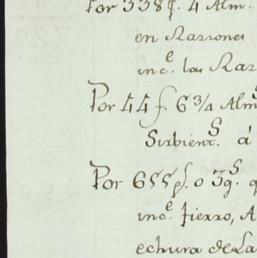 Por 338f. 4 Alm.
en Raziones
inc.e las Raz
Por 44 f 6 3/4 Alms
Sirbient.s á
Por 655p.s 0 3q.s q
inc.e fierro, A
echura de La